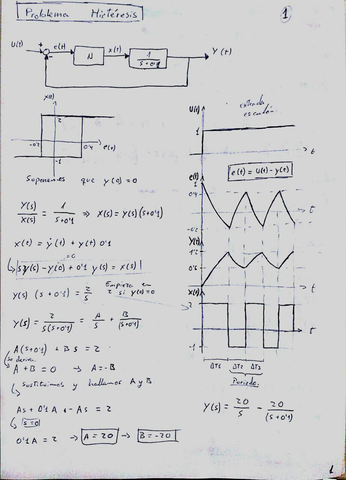 Problema Histéresis
1
U(t) + - e(t) N x(t) 1/(s+0'1) Y(t)
x(t)
2
-0.2 0.4 e(t)
-1
Suponemos que y(0)=0
Y(s)/X(s) = 1/(s+0'1) ⇒ X(s)=Y(s)(s+0'1)
x(t) = ẏ(t) + y(t) 0'1
sY(s) - y(0) + 0'1 y(s) = x(s)
=0
Y(s) (s+0'1) = 2/s Empieza en 2 si y(0)=0
Y(s) = 2/(s(s+0'1)) = A/s + B/(s+0'1)
A(s+0'1) + Bs = 2
Se deriva
A + B = 0 → A=-B
Sustituimos y hallamos A y B
As + 0'1A - As = 2
s=0
0'1A = 2 → A=20 → B=-20
U(t)
entrada escalón
1
t
e(t)
e(t) = U(t) - y(t)
1
0.4
-0.2
t
Y(t)
1'2
0'6
t
X(t)
2
-1
t
ΔT1 ΔT2 ΔT3
Periodo.
Y(s) = 20/s - 20/(s+0'1)
1